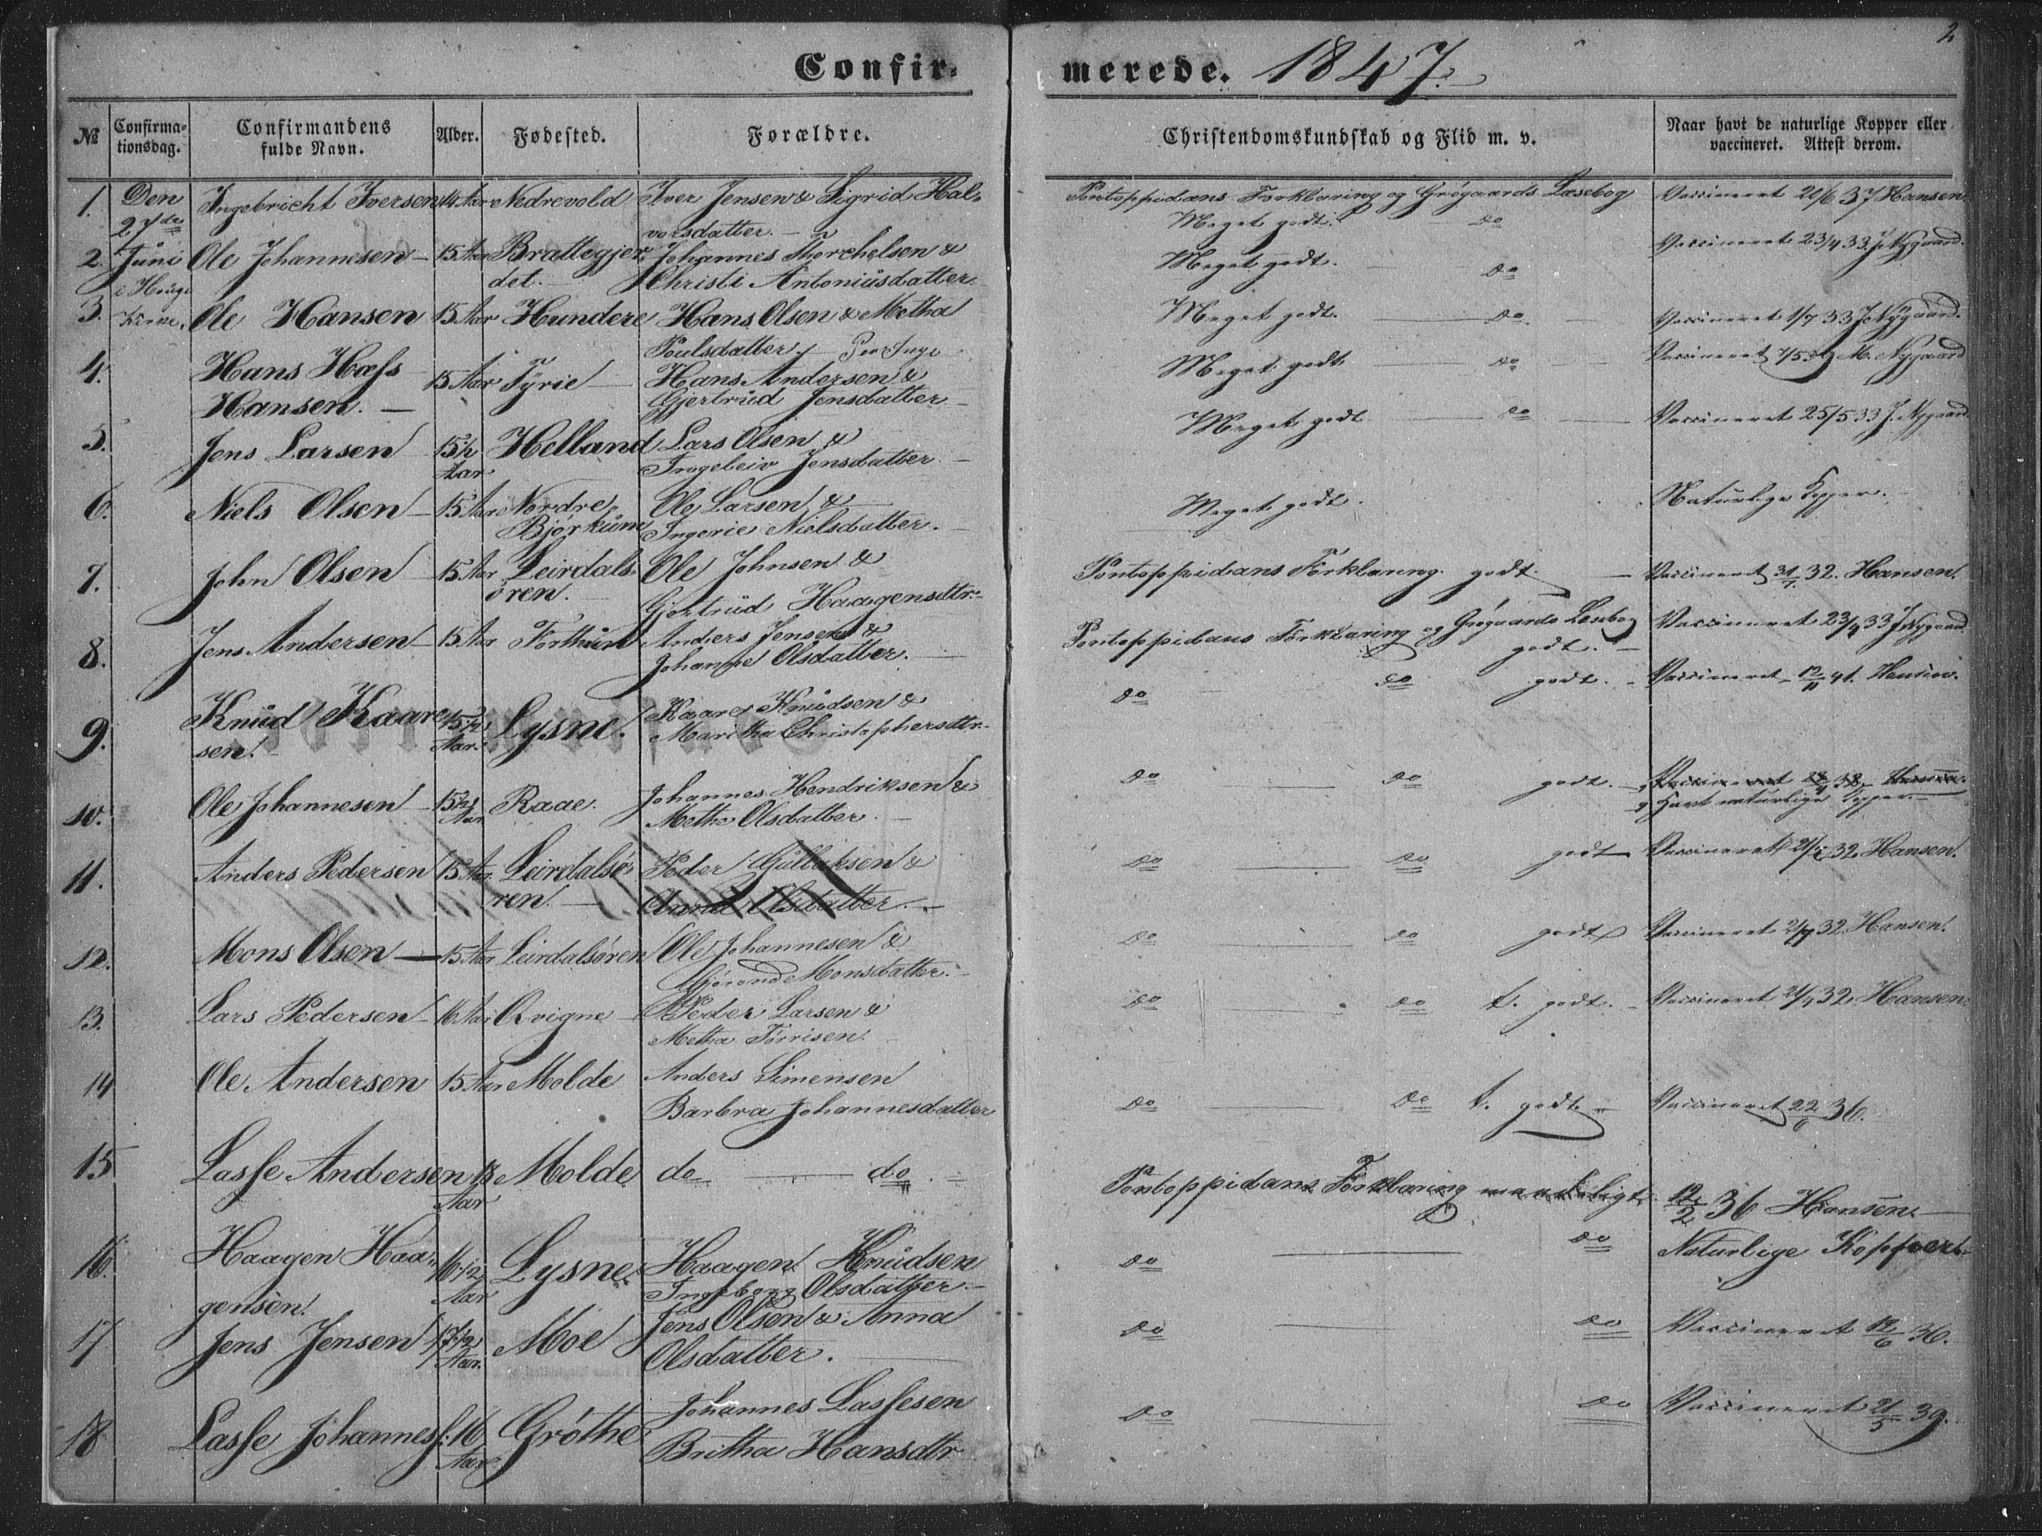 2
Confir- merede. 1847.
№ Confirma-tionsdag. Confirmandens fulde Navn. Alder. Fødested. Forældre. Christendomskundskab og Flid m. v. Naar havt de naturlige Kopper eller vaccineret. Attest derom.
1. Den 27de Ingebricht Iversen 14 Aar Nedrevold Iver Jensen & Sigrid Hal- Pontoppidans Forklaring og Grøgaards Læsebog Vaccineret 20/6 37 Hansen
vorsdatter. Meget godt. do
2. Juni Ole Johannesen 15 Aar Brattegjer- Johannes Thorchelsen & Meget godt. do Vaccineret 23/4 33 J. Nygaard.
i Houge det. Christi Antoniusdatter
3. Kirke. Ole Hansen 15 Aar Hundere Hans Olsen & Metha Meget godt. do Vaccineret 1/7 33 J. Nygaard.
Poulsdatter
4. Hans Hass 15 Aar Tyrie Hans Andersen & Meget godt. do Vaccineret M. Nygaard
Hansen. Gjertrud Jensdatter
5. Jens Larsen 15½ Aar Helland Lars Olsen & Meget godt do Vaccineret 25/5 33 J. Nygaard
Ingeleiv Jensdatter
6. Niels Olsen 15 Aar Nordre Ole Larsen & Meget godt. Naturlige Kopper.
Bjørkum Ingerie Nielsdatter.
7. John Olsen 15 Aar Leirdals- Ole Johnsen & Pontoppidans Forklaring godt. Vaccineret 31/7 32. Hansen.
ören. Gjertrud Haagensdtr.
8. Jens Andersen 15 Aar Forthun Anders Jensen & Pontoppidans Forklaring og Grøgaards Læsebog Vaccineret 23/4 33 J. Nygaard
Johanne Olsdatter. godt.
9. Knud Kaare- 15½ Aar. Lysne. Kaare Knudsen & do do godt. Vaccineret 12/11 41.
sen. Maritha Christophersdtr.
10. Ole Johannesen 15½ Aar Raae. Johannes Hendriksen & do do godt. Vaccineret
Metha Olsdatter. Havt naturlige Kopper.
11. Anders Pedersen 15 Aar Leirdalsø- Peder Gulbaksen & do do godt Vaccineret 32. Hansen.
ren. Anna Olsdatter.
12. Mons Olsen 15 Aar Leirdalsøren Ole Johannesen & do do godt Vaccineret 32. Hansen.
Gjøronde Monsdatter.
13. Lars Pedersen 16 Aar Qvigne Peder Larsen & do do t. godt. Vaccineret 32. Hansen.
Metha Torrisen.
14 Ole Andersen 15 Aar Molde Anders Simensen do do t. godt. Vaccineret 22/6 36.
Barbra Johannesdatter
15 Lasse Andersen 18 Aar Molde do do. Pontoppidans Forklaring maadeligt. 12/2 36 Hansen.
16. Haagen Haa- 16½ Aar Lysne Haagen Knudsen do do Naturlige Kopper
gensen. Ingeborg Olsdatter.
17 Jens Jensen 17½ Aar. Moe Jens Olsen & Anna do do Vaccineret 12/6 36.
Olsdatter.
18 Lasse Johannesf. 16 Aar Grøthe Johannes Lassesen do do Vaccineret 21/5 39.
Britha Hansdtr